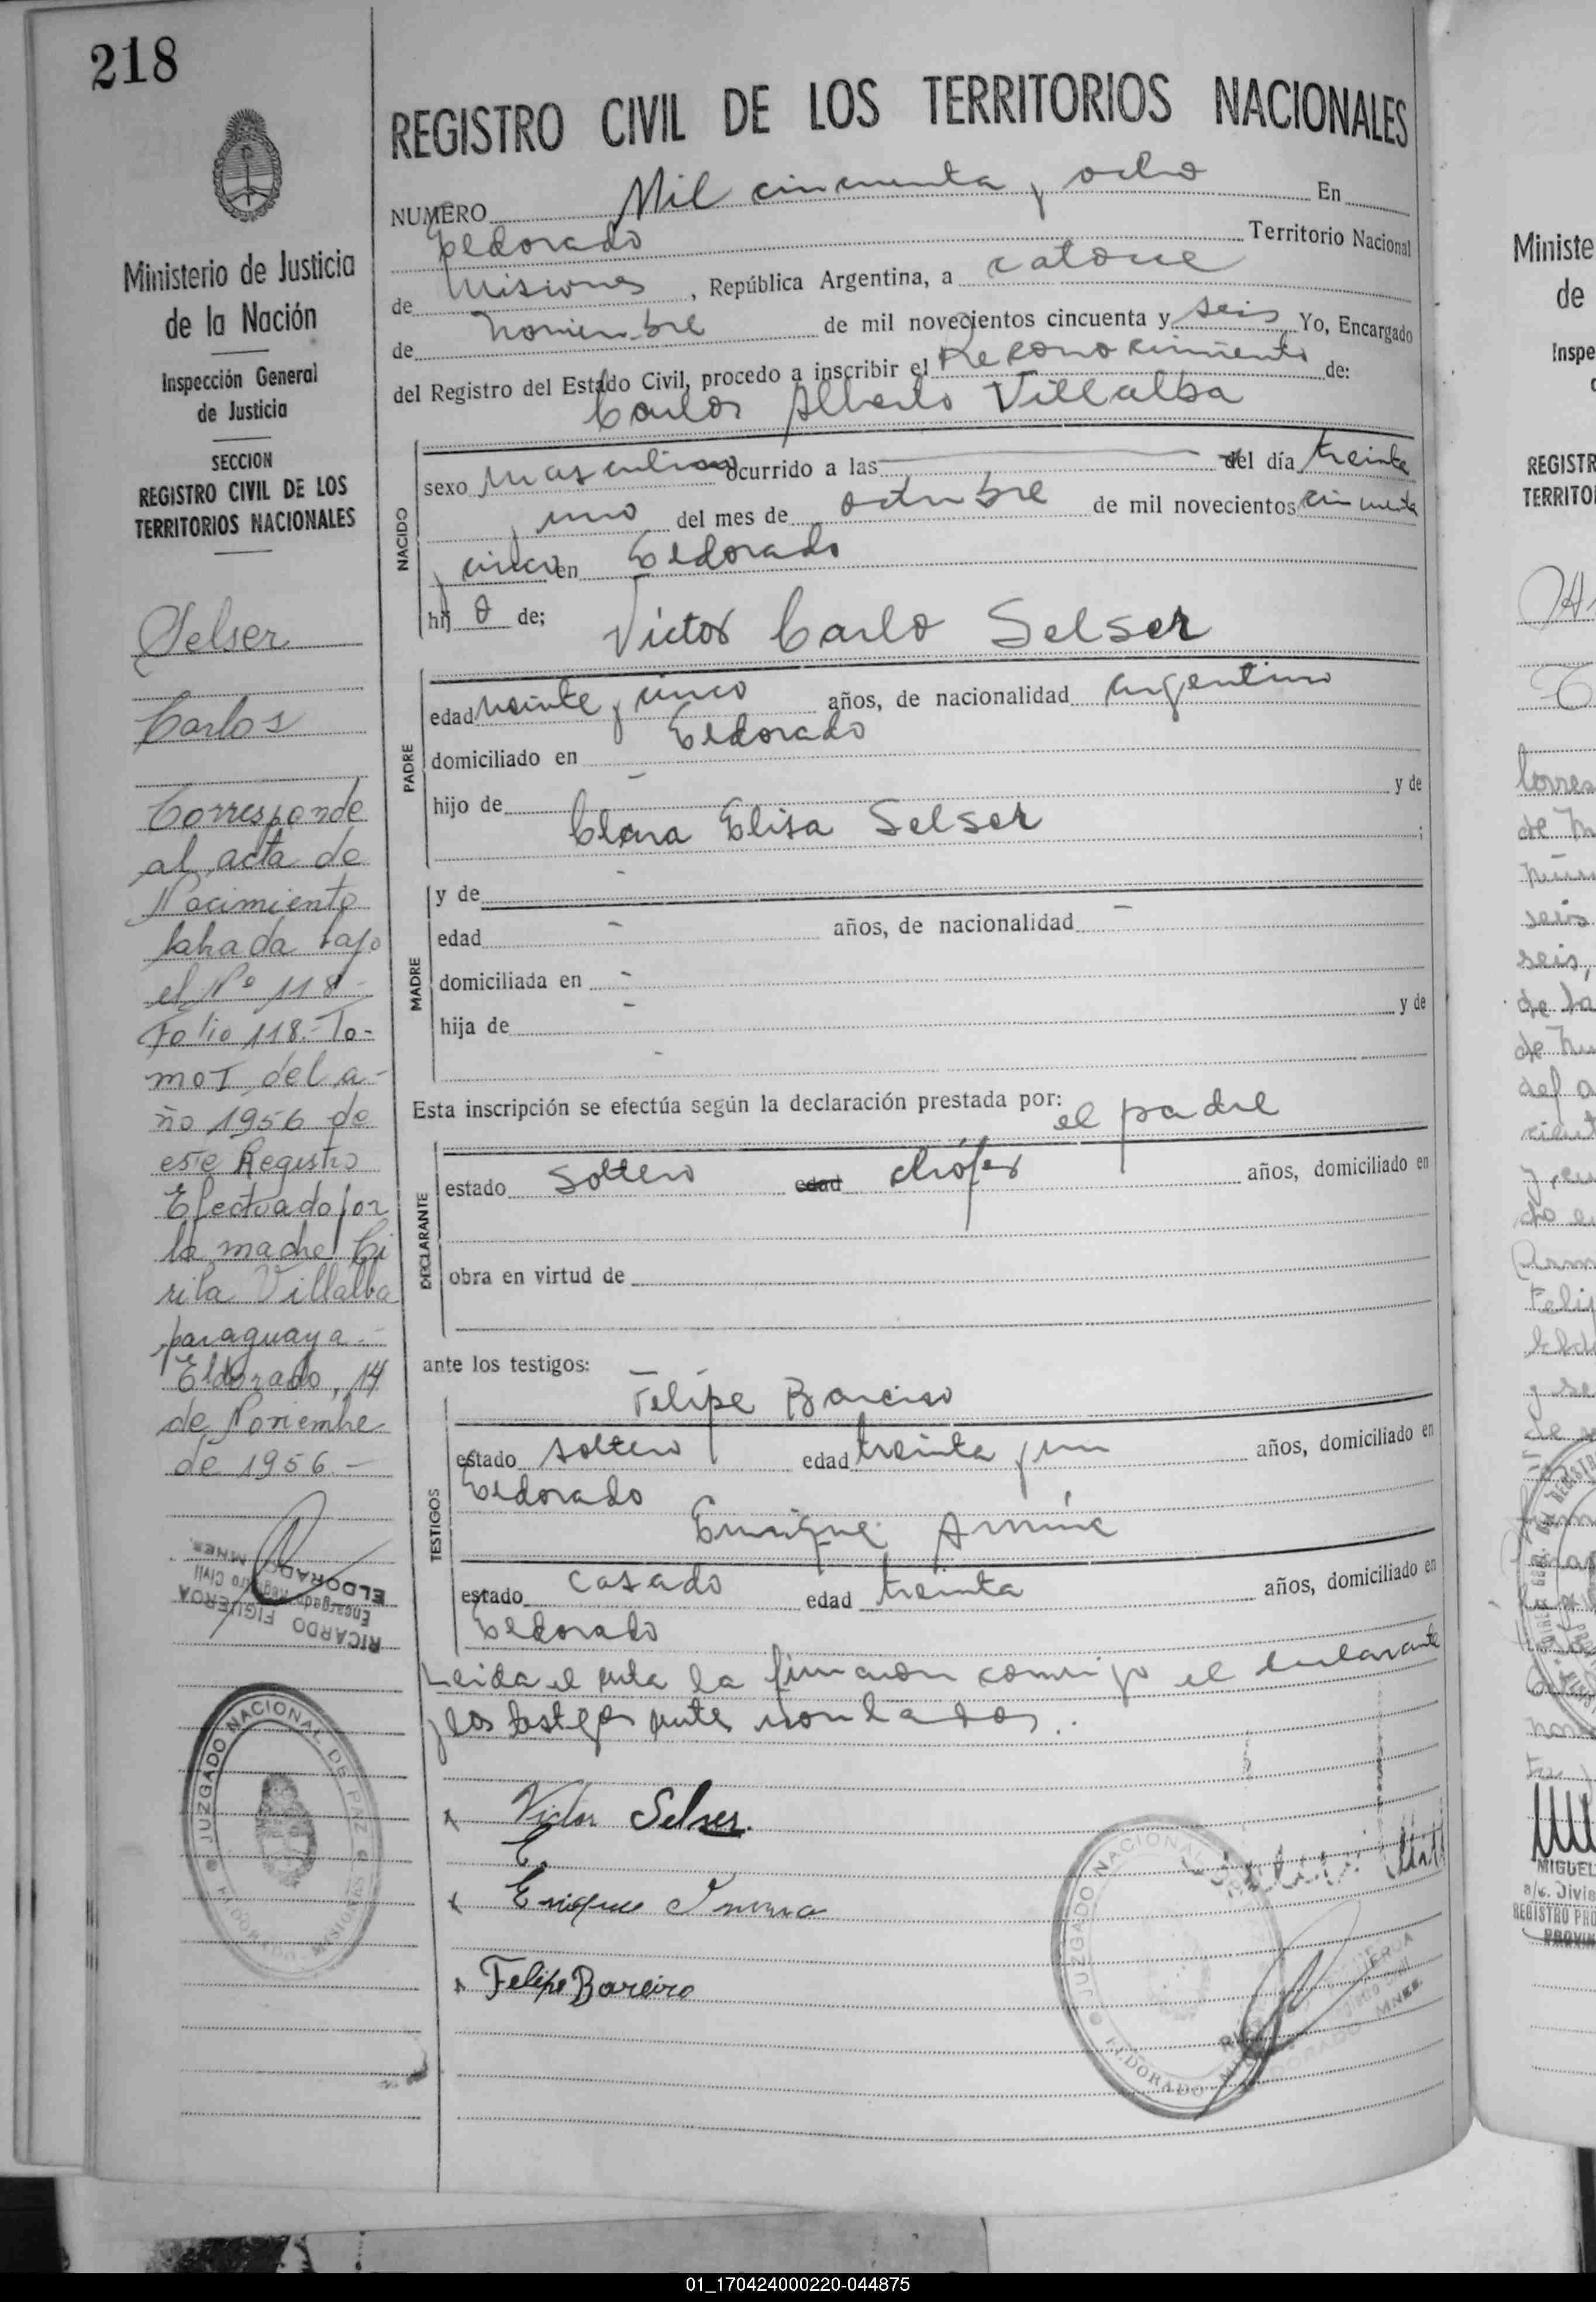 218
REGISTRO CIVIL DE LOS TERRITORIOS NACIONALES
NUMERO Mil cincuenta y ocho En
Eldorado Territorio Nacional
de Misiones, República Argentina, a catorce
de Noviembre de mil novecientos cincuenta y seis Yo, Encargado
del Registro del Estado Civil, procedo a inscribir el Reconocimiento de:
Carlos Alberto Villalba
NACIDO
sexo masculino ocurrido a las del día treinta
y uno del mes de octubre de mil novecientos cincuenta
y cinco en Eldorado
hijo de; Victor Carlo Selser
PADRE
edad veinte y cinco años, de nacionalidad argentino
domiciliado en Eldorado
hijo de - y de
Clara Elisa Selser ;
MADRE
y de -
edad - años, de nacionalidad -
domiciliada en -
hija de - y de
-
Esta inscripción se efectúa según la declaración prestada por: el padre
DECLARANTE
estado soltero edad chófer años, domiciliado en
obra en virtud de
ante los testigos:
Felipe Bareiro
TESTIGOS
estado soltero edad treinta y un años, domiciliado en
Eldorado
Enrique
estado casado edad treinta años, domiciliado en
Eldorado
Leida el acta la firmaron conmigo el declarante
y los testigos
Victor Selser.
E
Enrique
Felipe Bareiro
JUZGADO NACIONAL DE PAZ
ELDORADO MISIONES
ELDORADO MNES.
Ministerio de Justicia
de la Nación
Inspección General
de Justicia
SECCION
REGISTRO CIVIL DE LOS
TERRITORIOS NACIONALES
Selser
Carlos
Corresponde
al acta de
Nacimiento
labrada bajo
el Nº 118 -
Folio 118.- To-
mo I del a-
ño 1956 de
este Registro
Efectuado por
la madre Ci
rila Villalba
paraguaya.-
Eldorado, 14
de Noviembre
de 1956.-
RICARDO FIGUEROA
Encargado Registro Civil
ELDORADO MNES.
JUZGADO NACIONAL DE PAZ
ELDORADO - MISIONES
Ministe
de
Inspe
REGISTR
TERRITO
MIGUEL
a/c. Divis
REGISTRO PRO
PROVIN
01_170424000220-044875